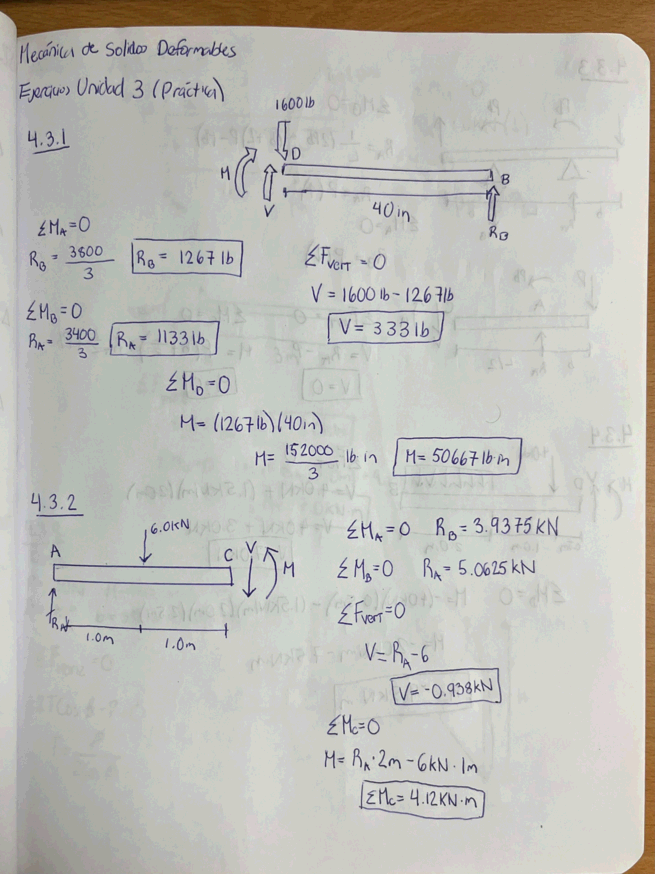 Mecánica de Solidos Deformables
Ejercicios Unidad 3 (Práctica)
4.3.1
1600 lb
D
M
V
B
40 in
R_B
ΣM_A = 0
R_B = 3800/3   R_B = 1267 lb
ΣM_B = 0
R_A = 3400/3   R_A = 1133 lb
ΣF_VERT = 0
V = 1600 lb - 1267 lb
V = 333 lb
ΣM_D = 0
M = (1267 lb)(40 in)
M = 152000/3 lb·in   M = 50667 lb·in
4.3.2
6.0KN
A
C
V
M
R_A
1.0m
1.0m
ΣM_A = 0   R_B = 3.9375 KN
ΣM_B = 0   R_A = 5.0625 KN
ΣF_VERT = 0
V = R_A - 6
V = -0.938 KN
ΣM_C = 0
M = R_A · 2m - 6KN · 1m
ΣM_C = 4.12 KN·m